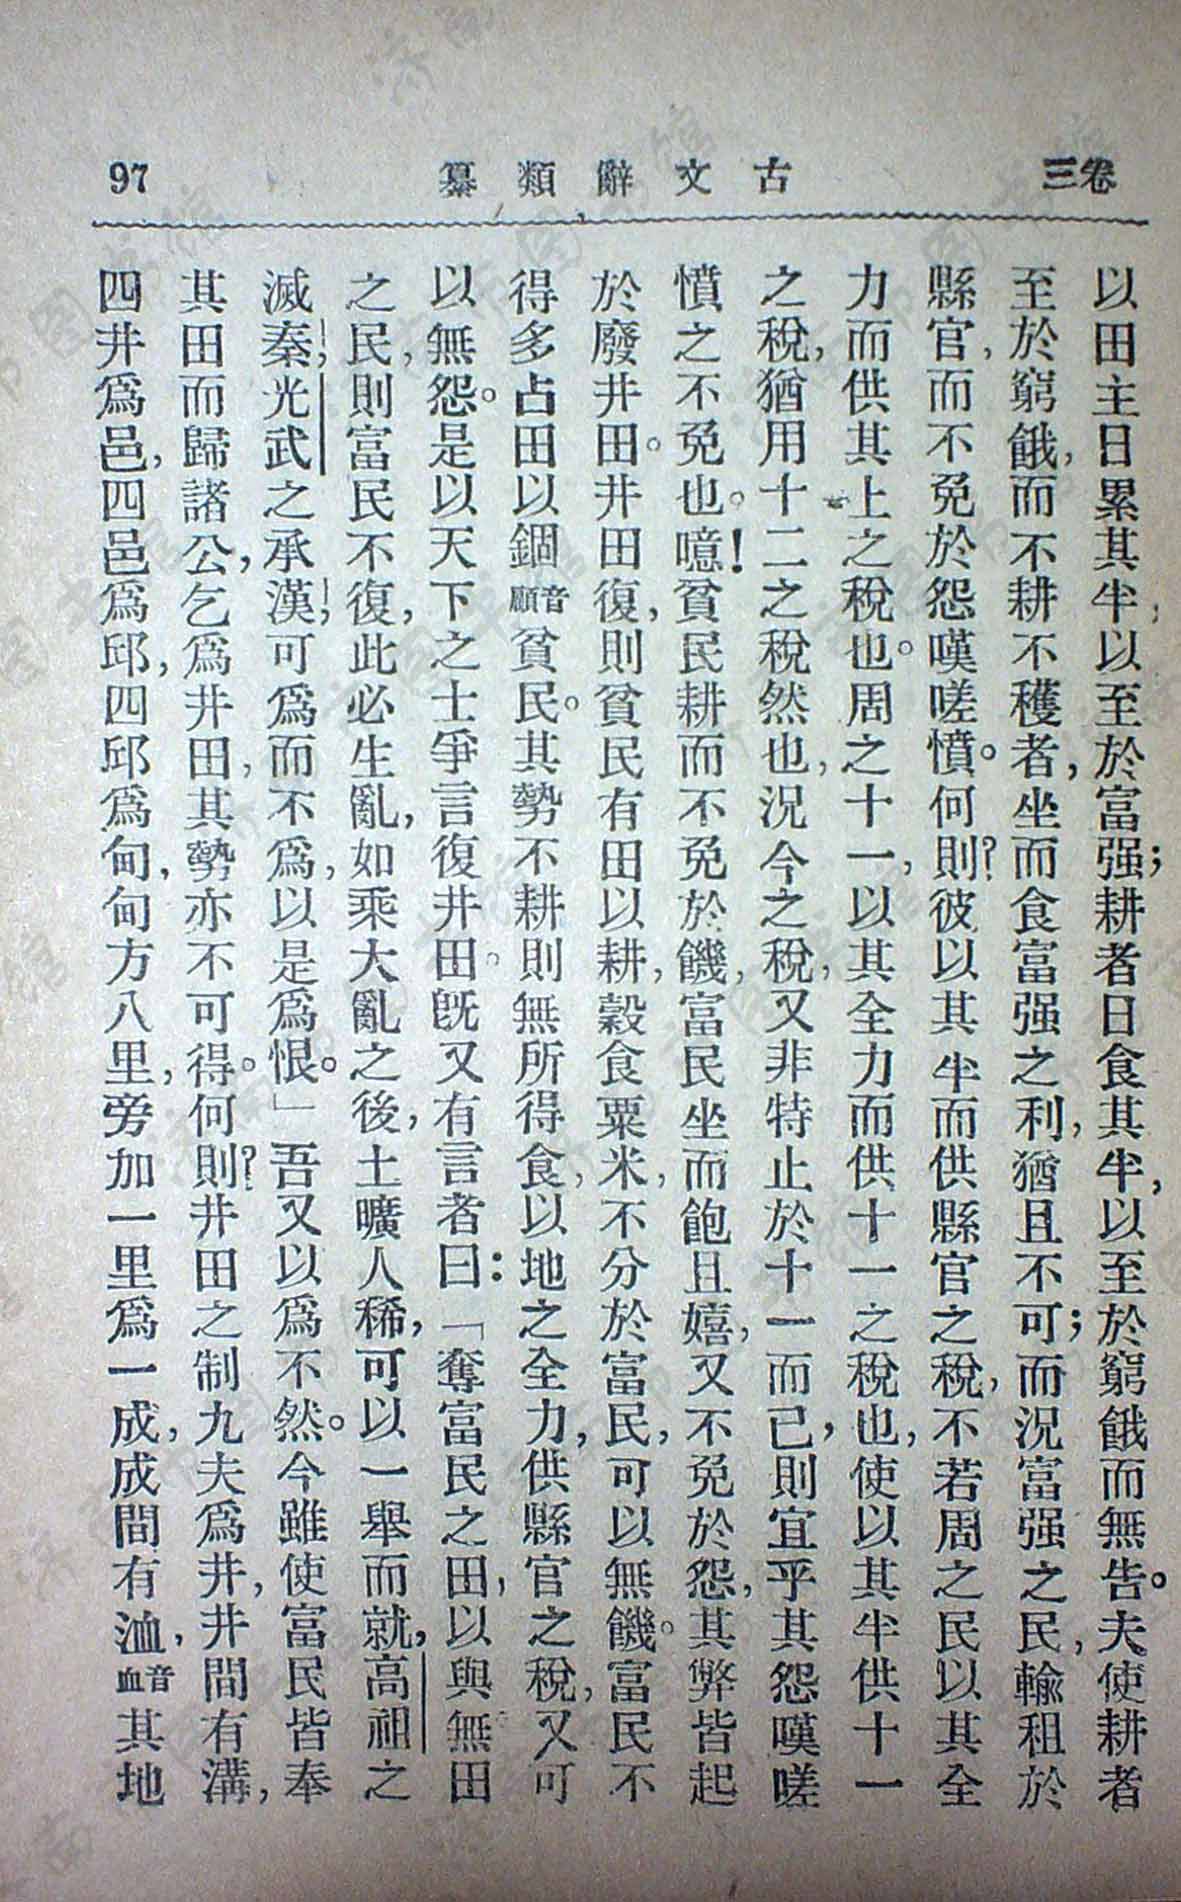 卷三
古文辭類纂
97
以田主日累其半,以至於富强;耕者日食其半,以至於窮餓而無告。夫使耕者
至於窮餓,而不耕不穫者,坐而食富强之利,猶且不可;而況富强之民,輸租於
縣官,而不免於怨嘆嗟憤。何則?彼以其半而供縣官之稅,不若周之民以其全
力而供其上之稅也。周之十一,以其全力而供十一之稅也,使以其半供十一
之稅,猶用十二之稅然也,況今之稅,又非特止於十一而已,則宜乎其怨嘆嗟
憤之不免也。噫!貧民耕而不免於饑,富民坐而飽且嬉,又不免於怨,其弊皆起
於廢井田。井田復,則貧民有田以耕,穀食粟米,不分於富民,可以無饑。富民不
得多占田以錮音顧貧民。其勢不耕則無所得食,以地之全力,供縣官之稅,又可
以無怨。是以天下之士爭言復井田。旣又有言者曰:「奪富民之田,以與無田
之民,則富民不復,此必生亂,如乘大亂之後,土曠人稀,可以一舉而就,高祖之
滅秦,光武之承漢,可爲而不爲,以是爲恨。」吾又以爲不然。今雖使富民皆奉
其田而歸諸公,乞爲井田,其勢亦不可得。何則?井田之制九夫爲井,井間有溝,
四井爲邑,四邑爲邱,四邱爲甸,甸方八里,旁加一里爲一成,成間有洫,音血其地